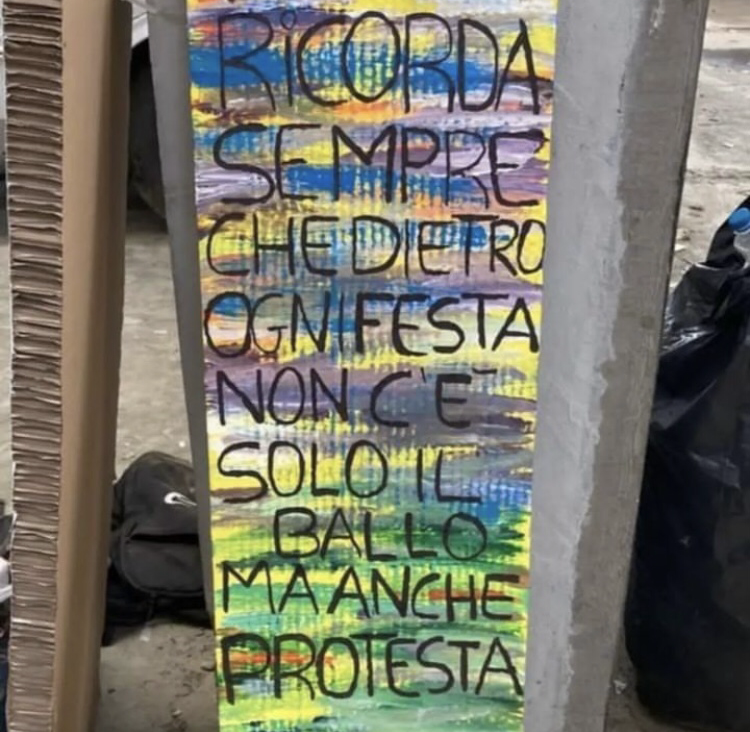 RiCORDA
SEMPRE
CHE DIETRO
OGNI FESTA
NON C'È
SOLO IL
BALLO
MA ANCHE
PROTESTA